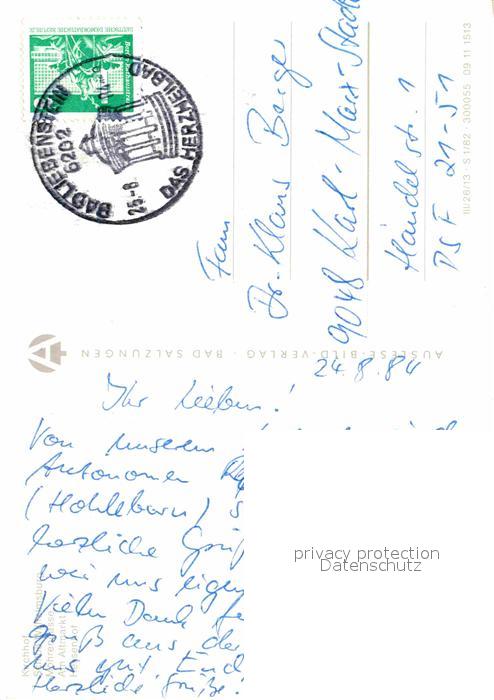 DEUTSCHE DEMOKRATISCHE REPUBLIK
BAD LIEBENSTEIN
6202
25.-8.
DAS HERZHEILBAD
Fam
Dr. Klaus Barge
9048 Karl-Marx-Stadt
Händelstr. 1
PSF 21-51
III/26/13 · S 1/82 · 300055 09 11 1513
AUSLESE-BILD-VERLAG · BAD SALZUNGEN
24.8.84
Ihr Lieben!
Von unserem
Autonomen
(Hohleborn) s
herzliche Grüß
wie uns eigen
Vielen Dank fe
Gruß aus de
uns gut. End
Herzliche Grüße!
privacy protection
Datenschutz
Kirchhof
Am Altmarkt
Hessenhof